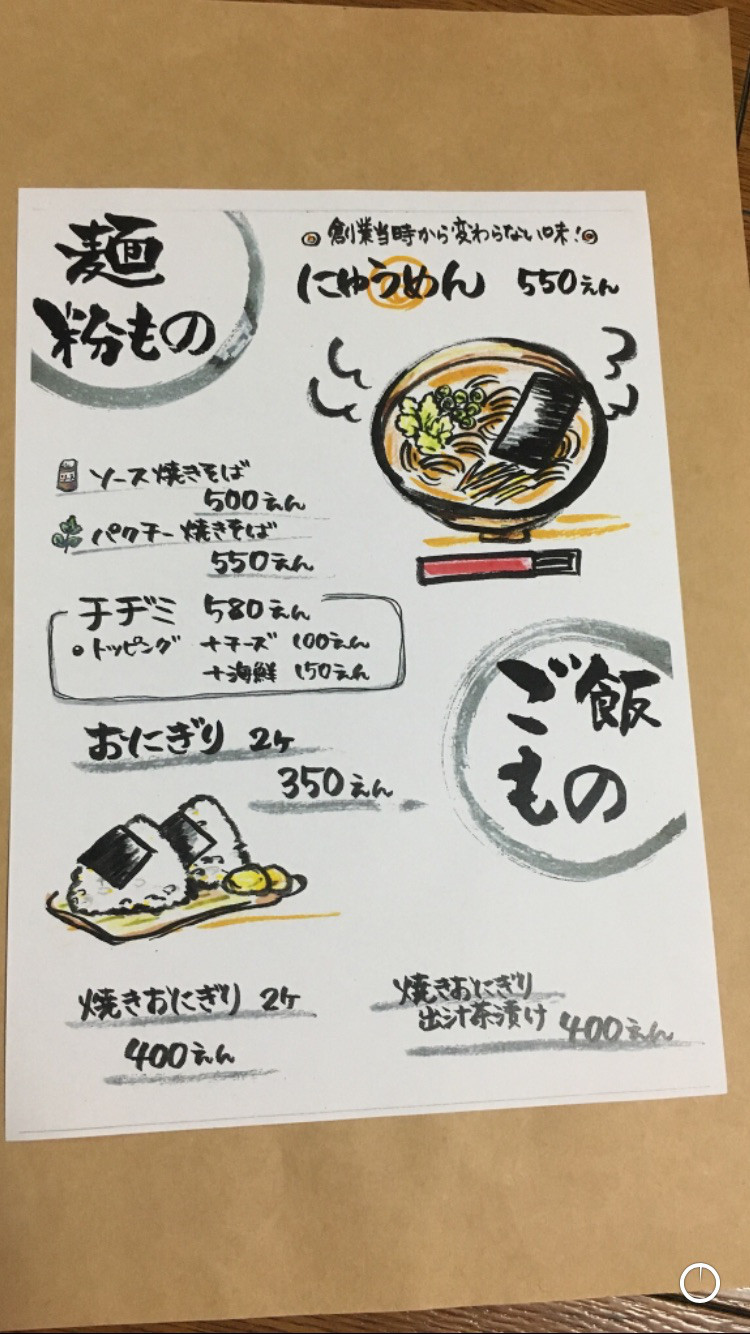 麺
粉もの
創業当時から変わらない味!
にゅうめん 550えん
ソース焼きそば
500えん
パクチー焼きそば
550えん
チヂミ 580えん
・トッピング +チーズ 100えん
+海鮮 150えん
ご飯
もの
おにぎり 2ヶ
350えん
焼きおにぎり 2ヶ
400えん
焼きおにぎり
出汁茶漬け 400えん